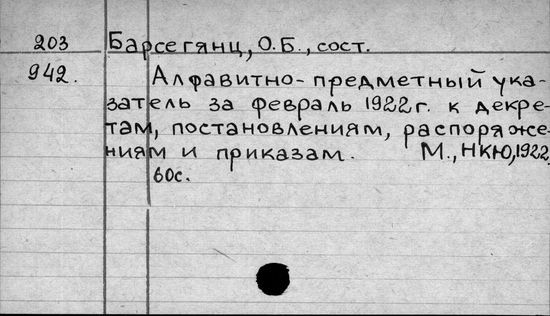 203 Барсегянц, О.Б., сост.
942. Алфавитно-предметный ука-
затель за февраль 1922г. к декре-
там, постановлениям, распоряже-
ниям и приказам. М., НКЮ, 1922
60с.